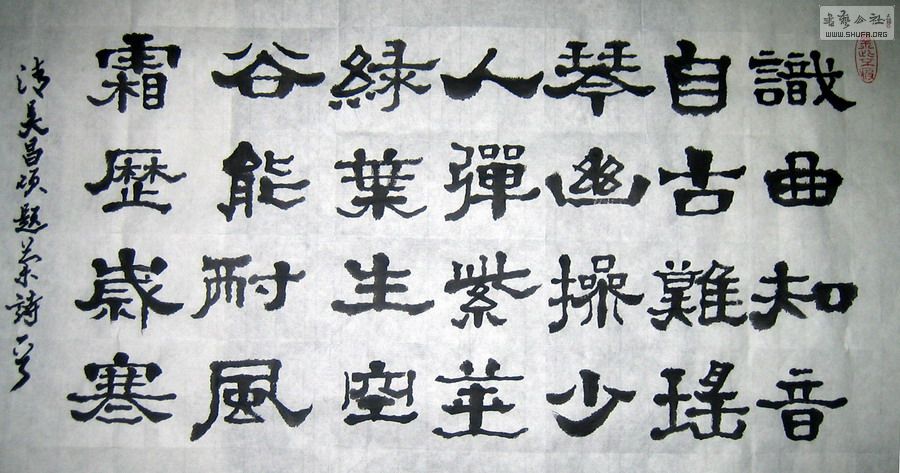 識曲知音
自古難瑤
琴幽操少
人彈紫莖
綠葉生空
谷能耐風
霜歷歲寒
清吴昌碩題蘭詩一首
書藝公社
WWW.SHUFA.ORG